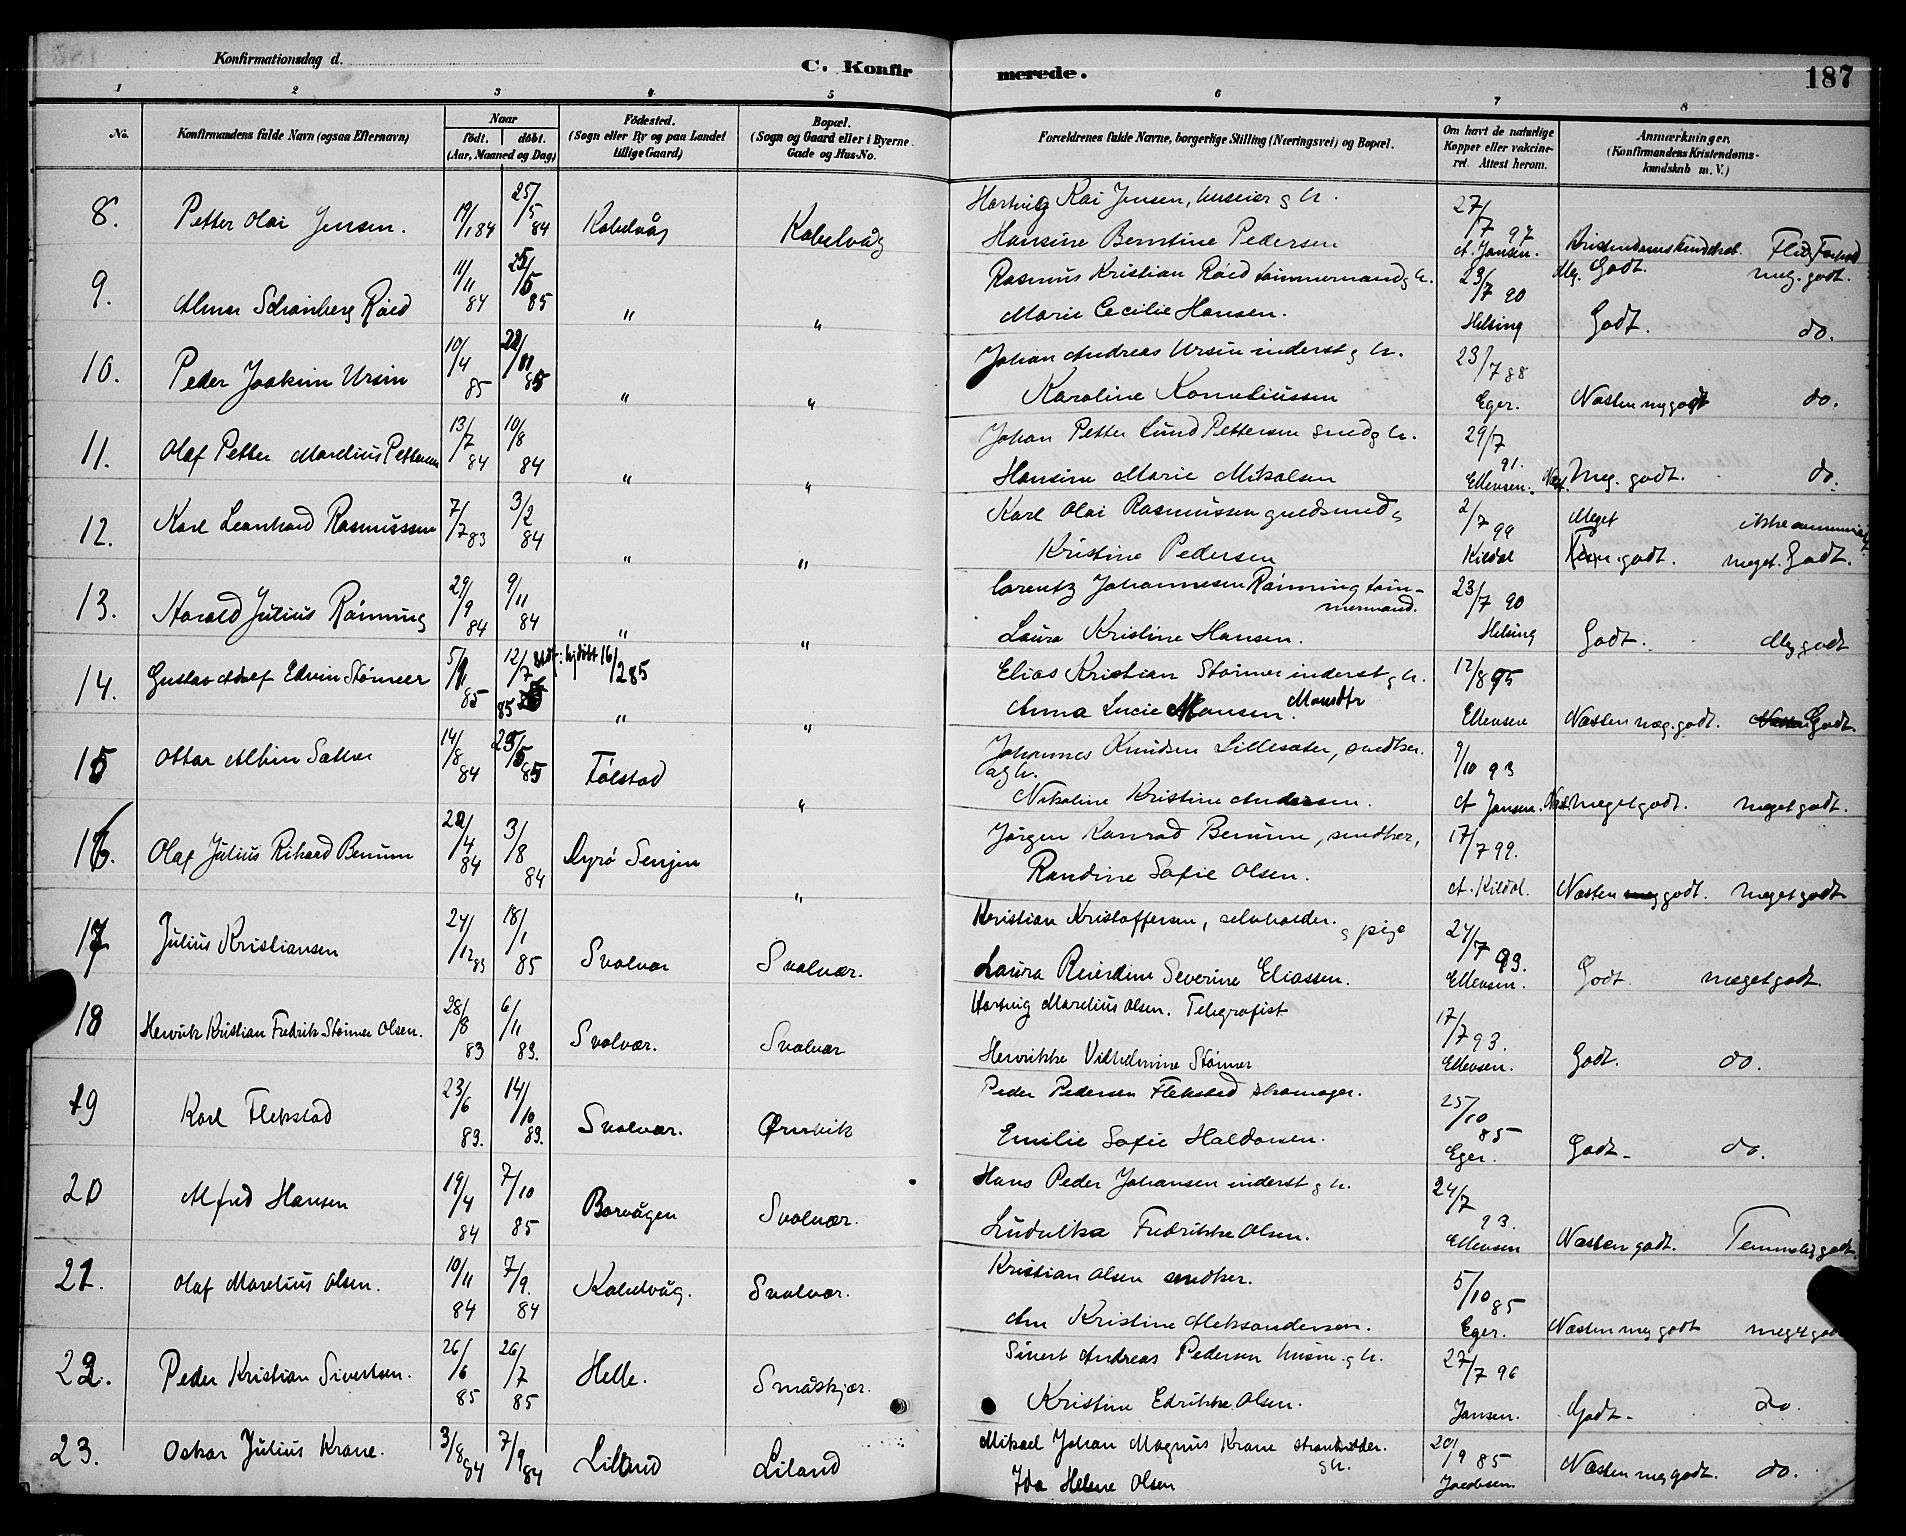 Konfirmationsdag d.
C. Konfirmerede.
187
1 2 3 4 5 6 7 8
No.
Konfirmandens fulde Navn (ogsaa Efternavn)
Naar
födt. döbt.
(Aar, Maaned og Dag)
Födested.
(Sogn eller By og paa Landet
tillige Gaard)
Bopæl.
(Sogn og Gaard eller i Byerne
Gade og Hus-No.
Forældrenes fulde Navne, borgerlige Stilling (Næringsvei) og Bopæl.
Om havt de naturlige
Kopper eller vakcine-
ret. Attest herom.
Anmærkninger,
(Konfirmandens Kristendoms-
kundskab m. V.)
8. Petter Olai Jensen. 19/1 84 25/5 84 Kabelvåg Kabelvåg
Hartvig Kai Jensen, huseier g h. 27/7 97
Hansine Berntine Pedersen A. Jansen. Kristendomskundskab. Flid, Forhold
Meg. Godt. meg. godt.
9. Almer Schrønberg Røed 11/11 84 25/5 85 " "
Rasmus Kristian Røed tømmermand g h. 23/7 90
Marie Cecilie Hansen. Helsing Godt. do.
10. Peder Joakim Ursin 10/4 85 22/11 85 " "
Johan Andreas Ursin inderst g h. 23/7 88
Karoline Korneliussen Eger. Næsten meg godt do.
11. Olaf Petter Mardius Pettersen 13/7 84 10/8 84 " "
Johan Petter Lund Pettersen smed g h. 29/7 91.
Hansine Marie Mikalsen Ellevsen. Næst. Meg. godt. do.
12. Karl Leonhard Rasmussen 7/7 83 3/2 84 " "
Karl Olai Rasmussen guldsmed g 2/7 99 Meget
Kristine Pedersen Kildal godt. meget. Godt.
13. Harald Julius Rønning 29/9 84 9/11 84 " "
Lorentz Johannesen Rønning tøm-
mermand. 23/7 90
Laura Kristine Hansen. Helsing Godt. Meg godt
14. Gustav Adolf Edvin Størmer 5/1 85 12/7 85 hjdøbt 16/2 85 " "
Elias Kristian Størmer inderst g h. 12/8 95
Anna Lucie Monsen. Monsdtr Ellevsen Næsten meg. godt. Godt.
15 Ottar Albin Sæther 14/8 84 25/5 85 Følstad "
Johannes Knudsen Lillesæter, snedker.
og h. 9/10 93
Nikoline Kristine Andersen. A Jansen. Næst meget godt. meget godt.
16. Olaf Julius Rikard Benum 22/4 84 3/8 84 Dyrø Senjen "
Jørgen Konrad Benum, snedker, 17/7 99.
Randine Sofie Olsen. A. Kildal. Næsten godt. meget godt
17 Julius Kristiansen 24/12 83 18/1 85 Svolvær Svolvær.
Kristian Kristoffersen, selvholder. g pige 24/7 93.
Laura Reierdine Severine Eliassen. Ellevsen. Godt. meget godt.
18 Henrik Kristian Fredrik Størmer Olsen. 28/8 83 6/11 83. Svolvær. Svolvær
Hartvig Mardius Olsen. Telegrafist 17/7 93.
Henrikke Vilhelmine Størmer Ellevsen. Godt. do.
19 Karl Flekstad 23/6 83. 14/10 83. Svolvær. Ørsvik
Peder Pedersen Flekstad skomager. 25/10 85
Emilie Sofie Haldorsen. Eger. Godt. do.
20 Alfred Hansen 19/4 84 7/10 85 Borvågen Svolvær.
Hans Peder Johansen inderst g h. 24/7 93.
Ludvika Fredrikke Olsen. Ellevsen Næsten godt. Temmelig godt
21. Olaf Mardius Olsen. 10/11 84 7/9. 84 Kabelvåg. Svolvær.
Kristian Olsen snedker. 5/10 85
Ane Kristine Aleksandersen. Eger. Næsten meg godt meget godt
22. Peder Kristian Sivertsen. 26/6 85 26/7 85 Helle. Småskjær.
Sivert Andreas Pedersen husm. g h. 27/7 96
Kristine Edrikke Olsen. Jansen. Godt. do.
23. Oskar Julius Krane. 3/8 84 7/9 84 Lilland Liland
Mikael Johan Magnus Krane strandsidder.
g h. 20/9 85
Ida Helene Olsen Jacobsen Næsten meg godt. do.